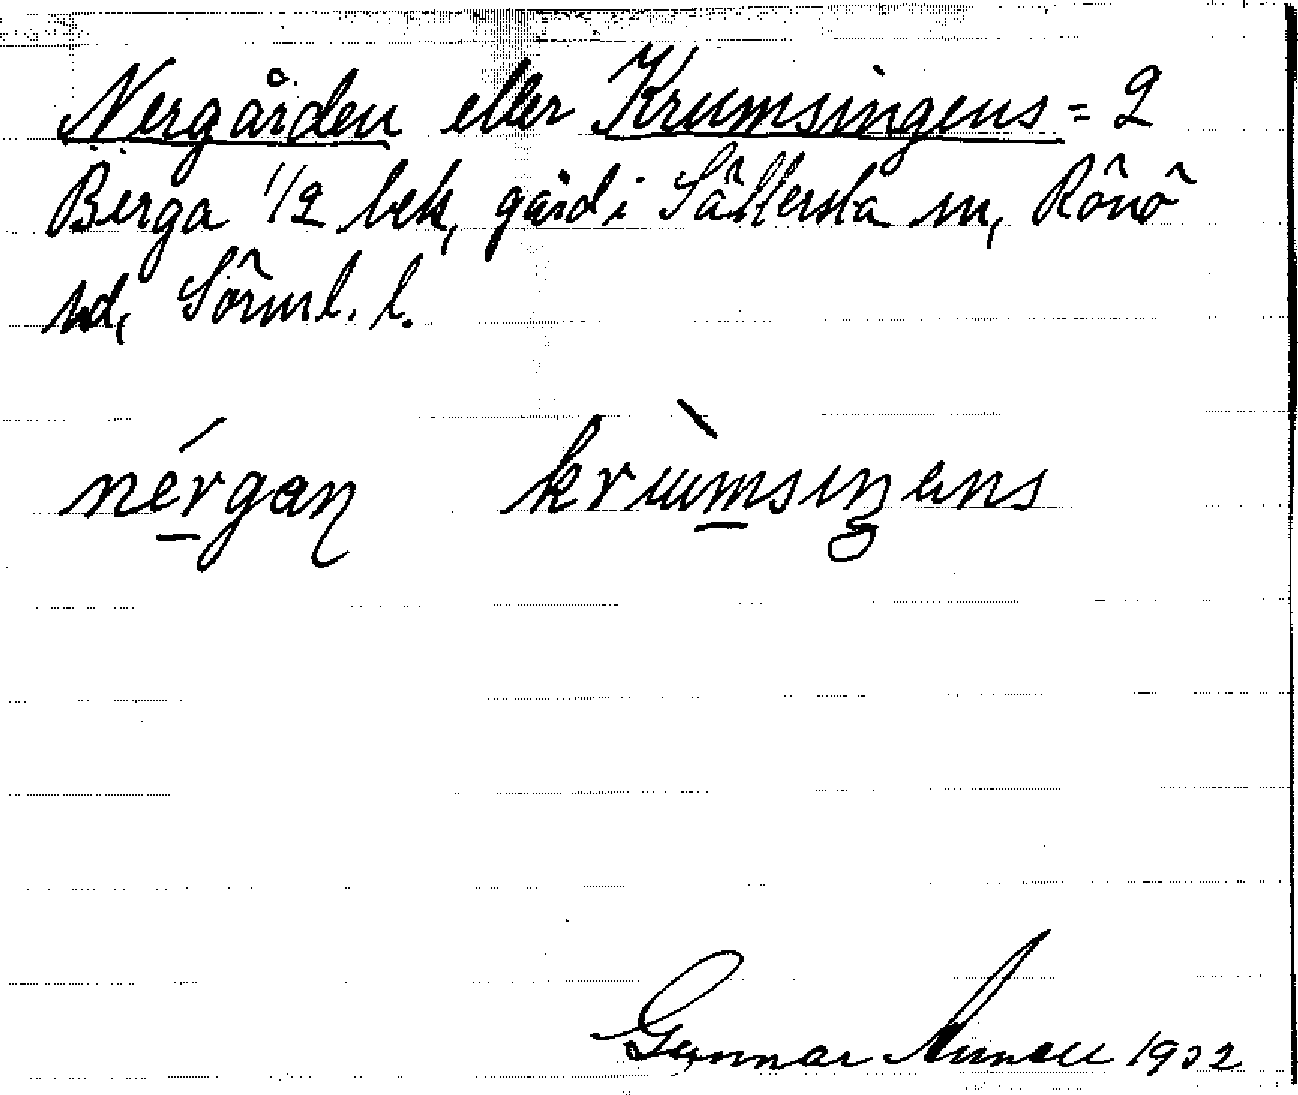 Nergården eller Krumsingens = 2
Berga 1/2 bek, gård i Sättersta sn, Rönö
hd, Sörml. l.
nérgaɳ krùmsiŋens
Gunnar 1932